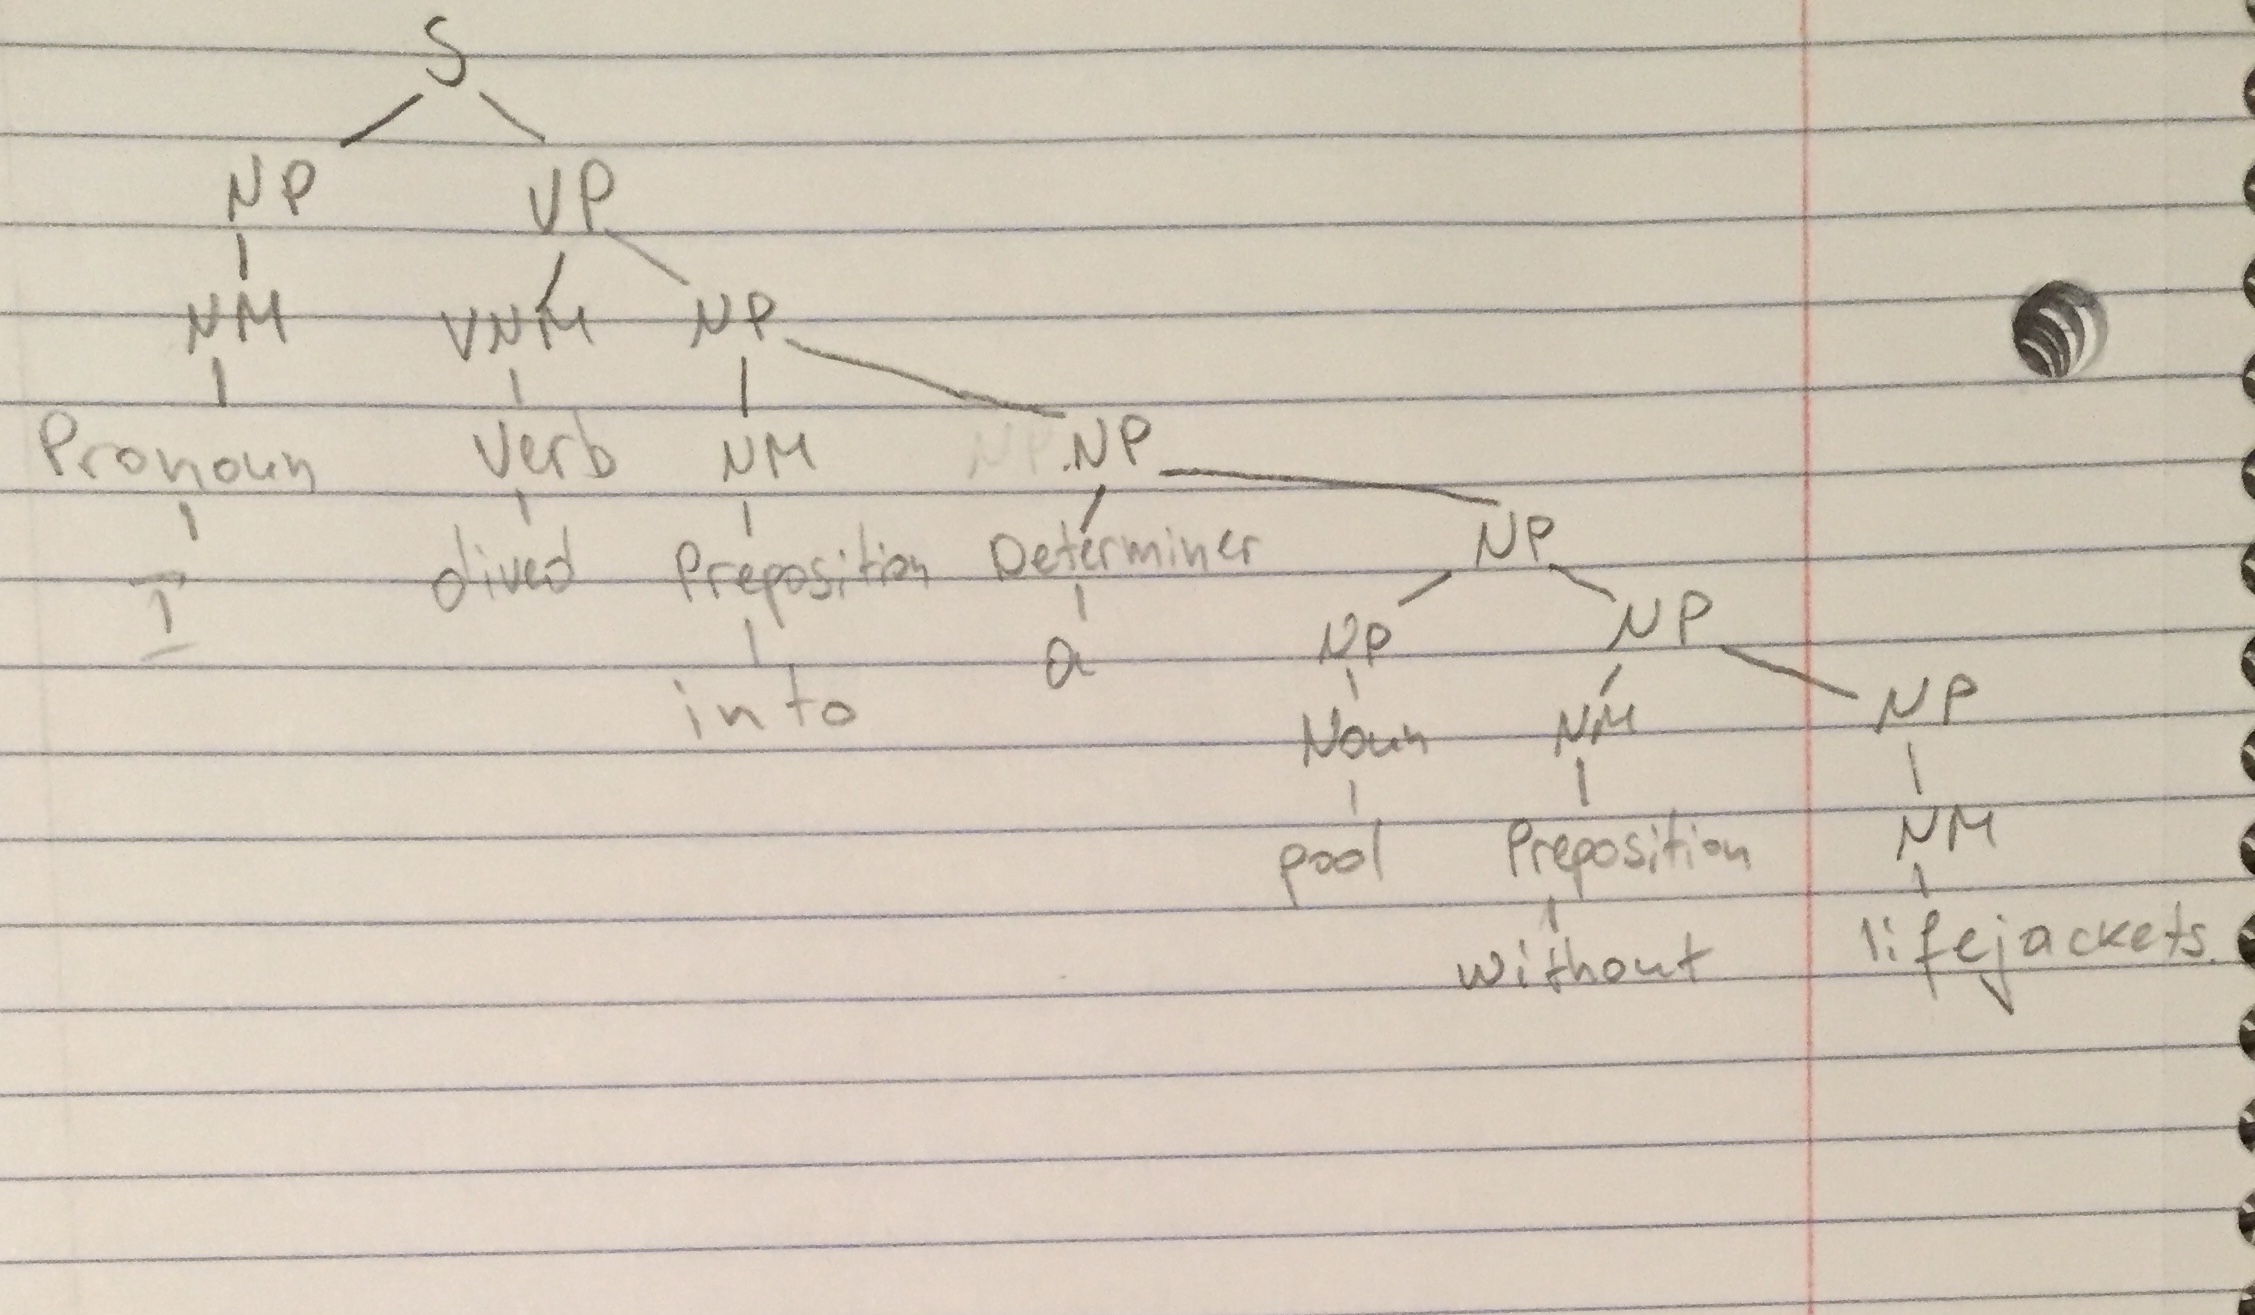 S
NP VP
NM VNM NP
Pronoun Verb NM NP NP
I dived Preposition Determiner NP
into a NP NP
Noun NM NP
pool Preposition NM
without lifejackets.